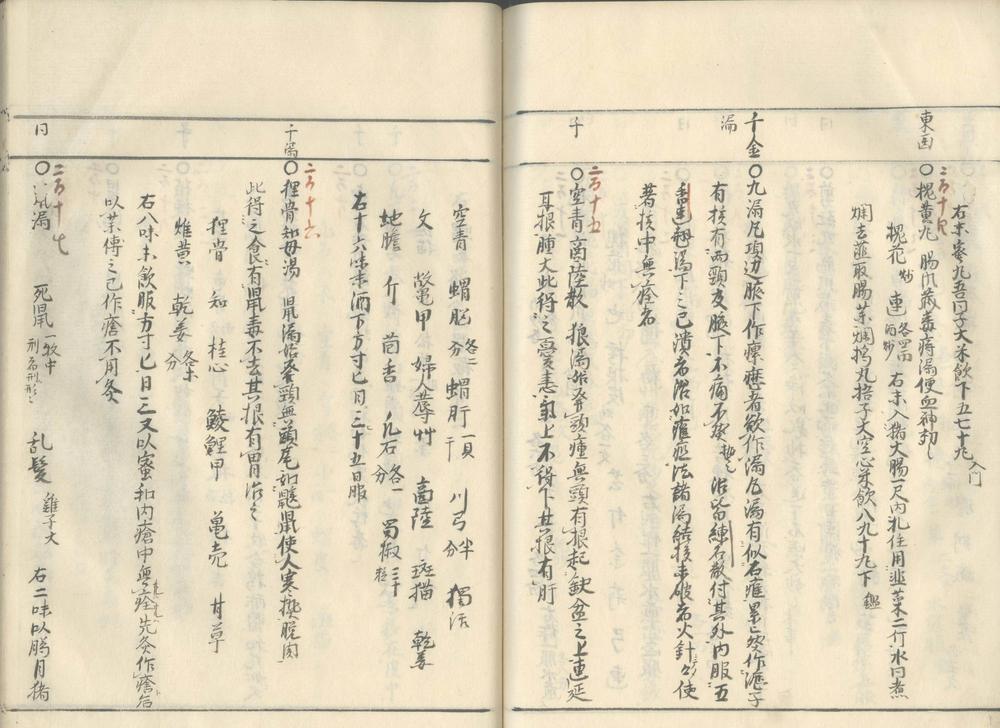 右末蜜丸吾同子大米飲下五七十丸 入門
東国
二百十四
○槐黄丸 腸風蔵毒痔漏便血神効
槐花 炒 連 各四両 酒炒 右末入猪大腸一尺内札住用韮菜二斤水同煮
爛去韮取腸薬爛搗丸梧子大空心米飲八九十丸下 鑑
千金
漏
○九漏凡項辺腋下作瘰癧者欲作漏凡漏有似石癰累々然作癧子
有核有両頸及腋下不痛不熱 治皆練石散付其外内服五
香連翹湯下之已潰者治如癰疽法諸漏結核未破者火針々使
著核中無疼者
千
二百十五
○空青商陸散 狼漏始発頭腫無頭有根起缺盆之上連延
耳根腫大此得之憂恚気上不得下其根有肝
空青 猬脳 各二分 猬肝 一具干 川弓 半分 獨活
鼈甲 婦人蓐艸 商陸 斑猫 乾姜
地膽 茴香 凡石 各一分 蜀椒 三十粒
右十六味末酒下方寸匕日三十五日服
千漏
二百十六
○狸骨知母湯 鼠漏始発頸無頭尾如鼷鼠使人寒熱脱肉
此得之食有鼠毒不去其根有胃治之
狸骨 知 桂心 鯪鯉甲 亀壳 甘草
雄黄 乾姜 各末分
右八味末飲服方寸匕日三又以蜜和内瘡中無痊先灸作瘡后
以薬傅之已作瘡不用灸
同
二百十七
○鼠漏 死鼠 一枚中 乱髪 雞子大 右二味以臈月猪